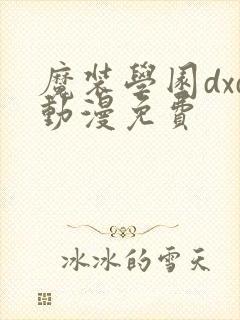 魔裝學園dxd
動漫免費
冰冰的雪天